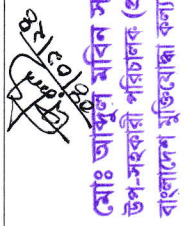 ৩০/০১/২৪
মোঃ আব্দুল মবিন স
উপ-সহকারী পরিচালক (প্র
বাংলাদেশ মুক্তিযোদ্ধা কল্যা